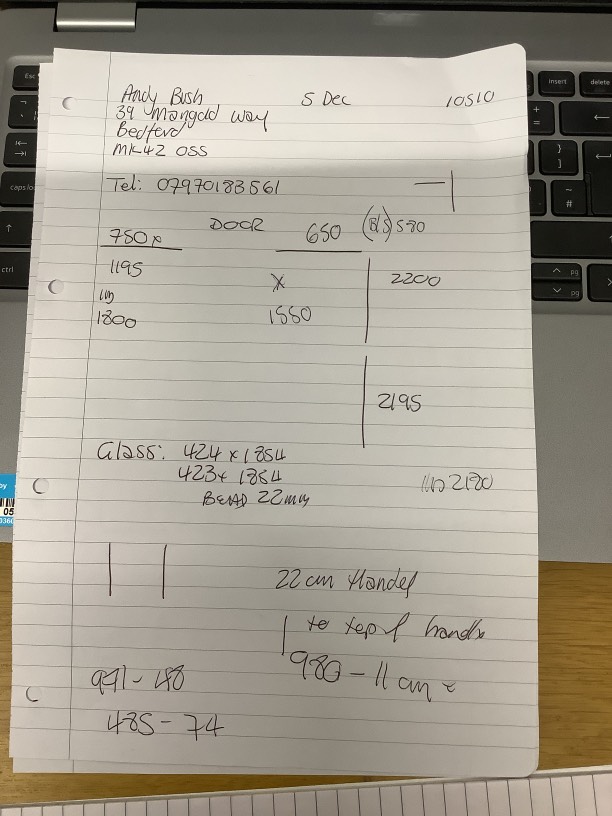 Andy Bush 5 Dec 10510
39 Marigold Way
Bedford
MK42 0SS
Tel: 07970183561
DOOR
750 x 650 (B/S) 580
1195 x 2200
1800 1550
2195
Glass: 424 x 1854
423 x 1854
BEAD 22mm
2180
22cm Handel
to top of handle
980 - 11 cm
991 - 
485 - 74
Esc
insert
delete
caps lo
ctrl
pg
pg